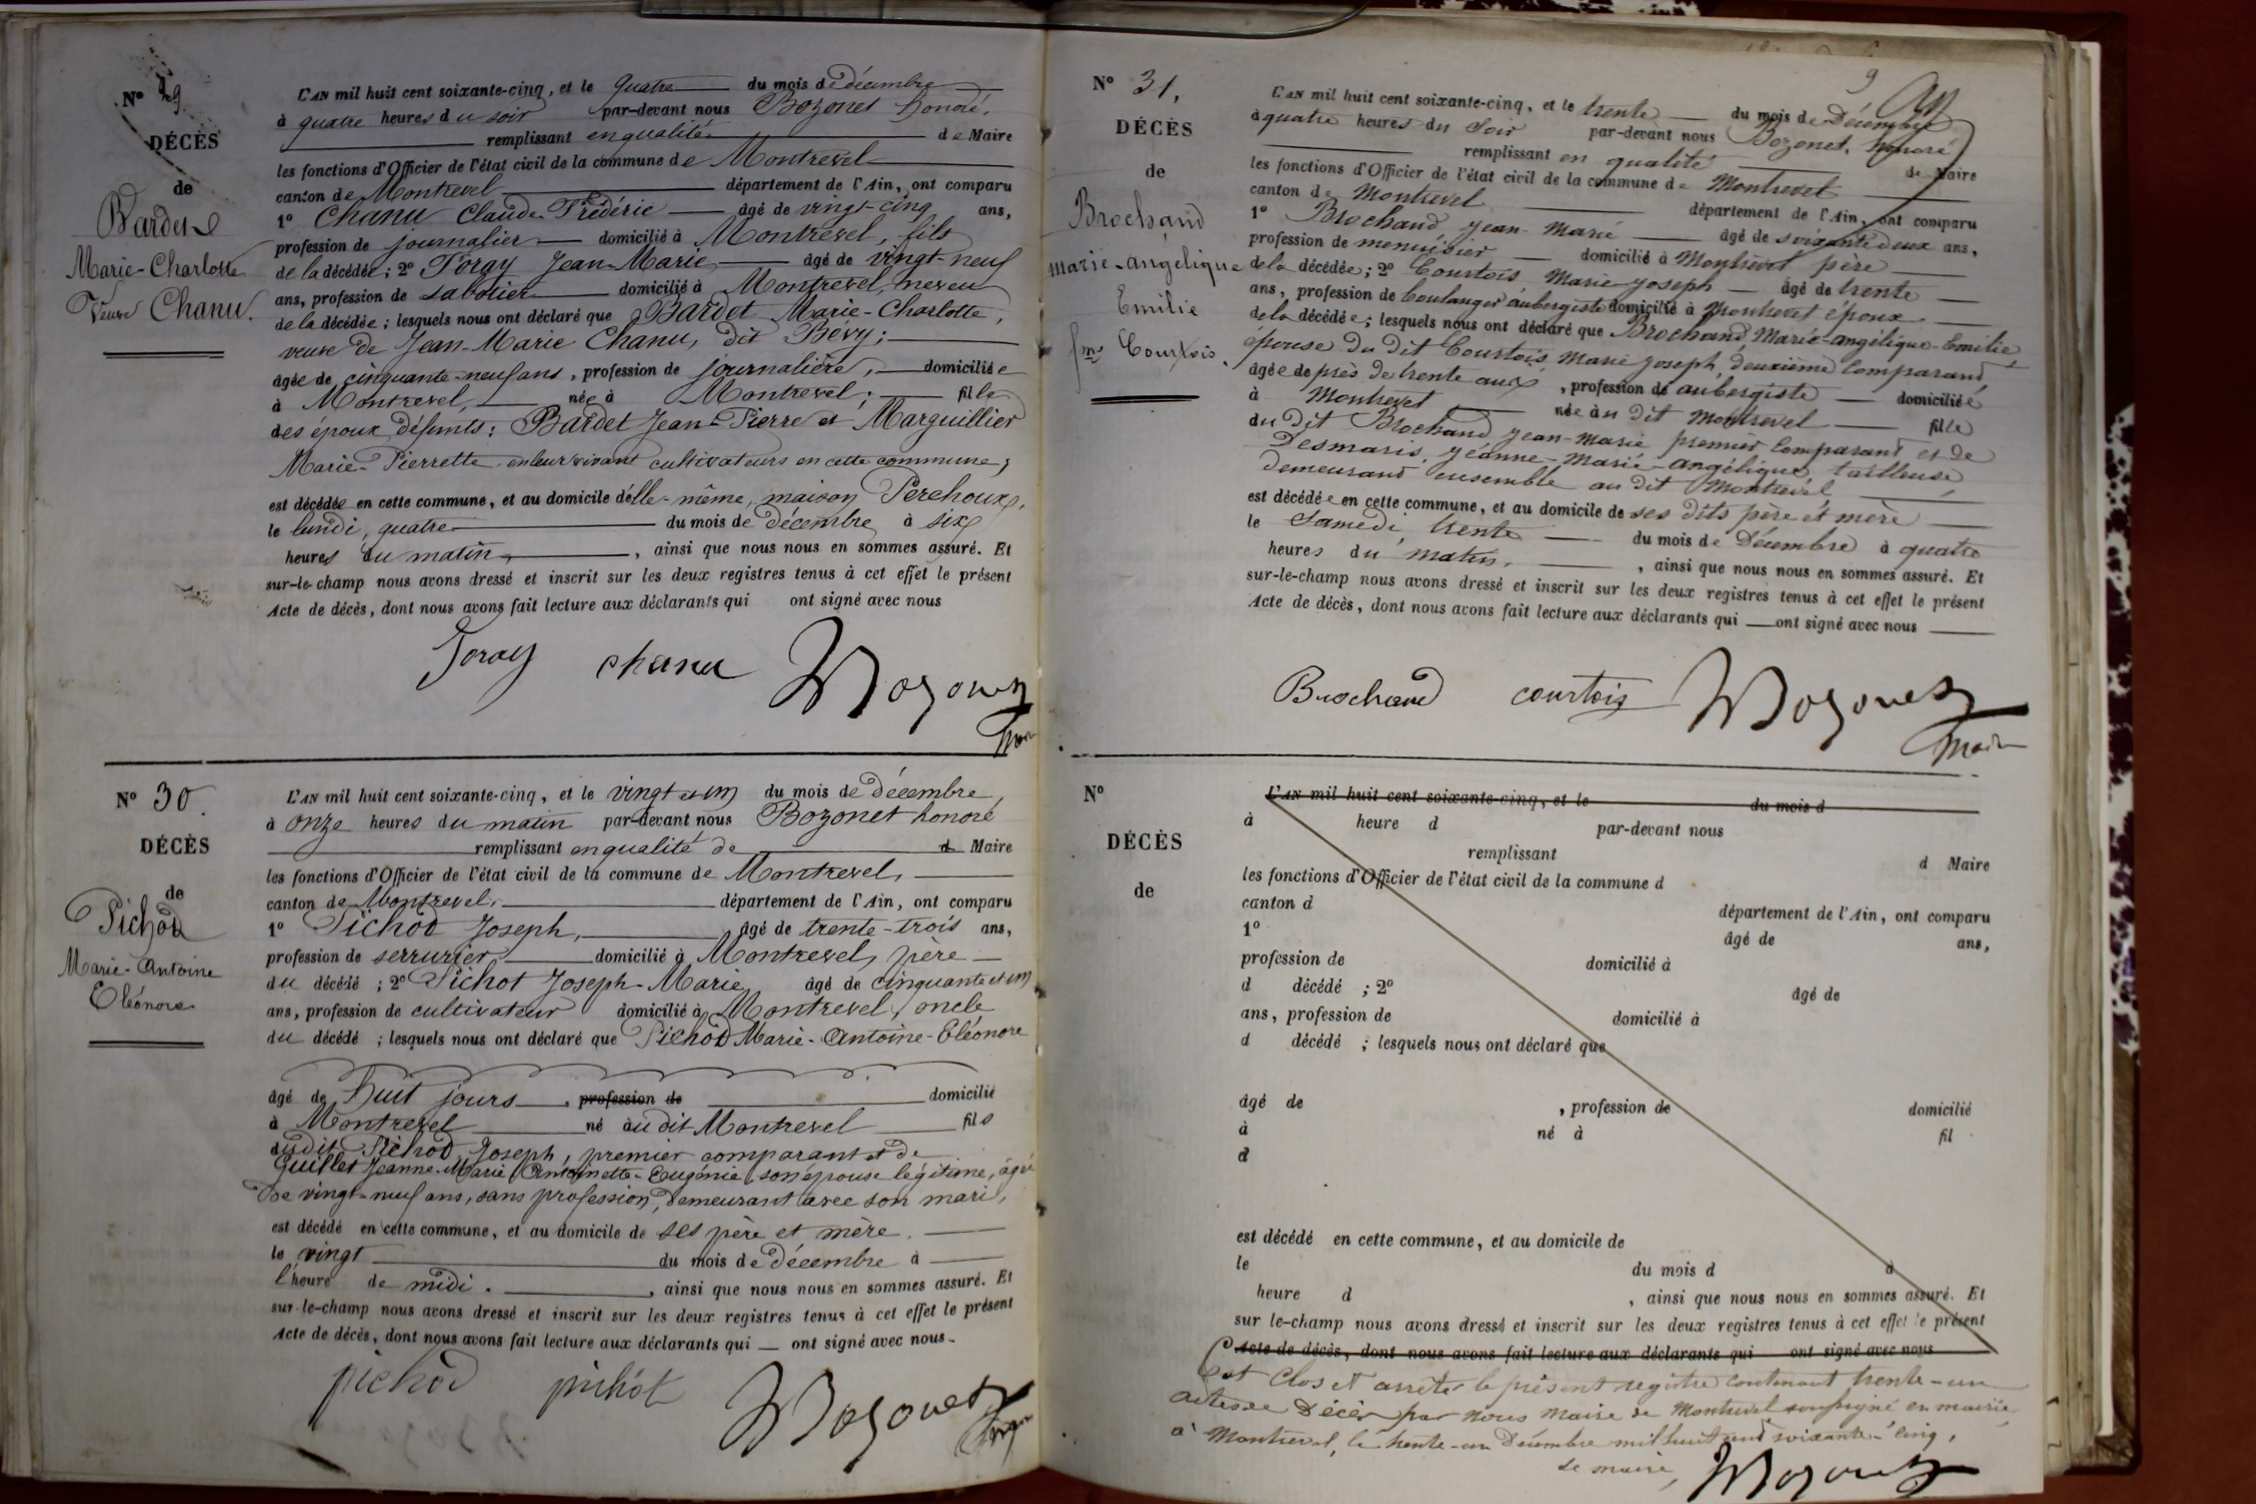 N° 29.
DÉCÈS
de
Bardet
Marie-Charlotte
Veuve Chanu.
L'AN mil huit cent soixante-cinq, et le quatre du mois de décembre
à quatre heures du soir par-devant nous Bozonet honoré,
remplissant en qualité de Maire
les fonctions d'Officier de l'état civil de la commune de Montrevel
canton de Montrevel département de l'Ain, ont comparu
1° Chanu Claude-Frédéric âgé de vingt-cinq ans,
profession de journalier domicilié à Montrevel, fils
de la décédée; 2° Foray Jean-Marie âgé de vingt-neuf
ans, profession de sabotier domicilié à Montrevel, neveu
de la décédée; lesquels nous ont déclaré que Bardet Marie-Charlotte,
veuve de Jean-Marie Chanu, dit Bevy;
âgée de cinquante-neuf ans, profession de journalière, domiciliée
à Montrevel, née à Montrevel; fille
des époux défunts: Bardet Jean-Pierre et Marguillier
Marie-Pierrette en leur vivant cultivateurs en cette commune;
est décédée en cette commune, et au domicile d'elle-même, maison Perchoux,
le lundi, quatre du mois de décembre à six
heures du matin, ainsi que nous nous en sommes assuré. Et
sur-le-champ nous avons dressé et inscrit sur les deux registres tenus à cet effet le présent
Acte de décès, dont nous avons fait lecture aux déclarants qui ont signé avec nous
Foray chanu Bozonet
maire
N° 30.
DÉCÈS
de
Pichod
Marie-Antoine
Eléonore
L'AN mil huit cent soixante-cinq, et le vingt et un du mois de décembre,
à onze heures du matin par-devant nous Bozonet honoré
remplissant en qualité de d Maire
les fonctions d'Officier de l'état civil de la commune de Montrevel,
canton de Montrevel, département de l'Ain, ont comparu
1° Pichod Joseph, âgé de trente-trois ans,
profession de serrurier domicilié à Montrevel, père
du décédé; 2° Pichot Joseph-Marie, âgé de cinquante et un
ans, profession de cultivateur domicilié à Montrevel, oncle
du décédé; lesquels nous ont déclaré que Pichod Marie-Antoine-Eléonore
âgé de huit jours, profession de domicilié
à Montrevel né au dit Montrevel fils
du dit Pichod Joseph, premier comparant et de
Guillet Jeanne-Marie Antoinette-Eugénie son épouse légitime, âgée
de vingt-neuf ans, sans profession, demeurant avec son mari,
est décédé en cette commune, et au domicile de ses père et mère.
le vingt du mois de décembre à
l'heure de midi, ainsi que nous nous en sommes assuré. Et
sur-le-champ nous avons dressé et inscrit sur les deux registres tenus à cet effet le présent
Acte de décès, dont nous avons fait lecture aux déclarants qui ont signé avec nous
pichod pichot Bozonet
maire
9
N° 31,
DÉCÈS
de
Brochand
Marie-angélique
Emilie
fme Courtois.
L'AN mil huit cent soixante-cinq, et le trente du mois de Décembre
à quatre heures du soir par-devant nous Bozonet, honoré
remplissant en qualité de Maire
les fonctions d'Officier de l'état civil de la commune de Montrevel
canton de Montrevel département de l'Ain, ont comparu
1° Brochand, Jean-Marie âgé de soixante deux ans,
profession de menuisier domicilié à Montrevel père
de la décédée; 2° Courtois Marie-Joseph âgé de trente
ans, profession de boulanger aubergiste domicilié à Montrevel époux
de la décédée; lesquels nous ont déclaré que Brochand, Marie-angélique-Emilie,
épouse du dit Courtois, Marie Joseph, deuxième Comparant,
âgée de près de trente ans, profession de aubergiste domiciliée
à Montrevel née au dit Montrevel fille
du dit Brochand Jean-Marie premier Comparant et de
Desmaris, Jeanne-Marie-angélique, tailleuse,
demeurant ensemble au dit Montrevel
est décédée en cette commune, et au domicile de ses dits père et mère
le Samedi, trente du mois de Décembre à quatre
heures du matin, ainsi que nous nous en sommes assuré. Et
sur-le-champ nous avons dressé et inscrit sur les deux registres tenus à cet effet le présent
Acte de décès, dont nous avons fait lecture aux déclarants qui ont signé avec nous
Brochand courtois Bozonet
maire
N°
DÉCÈS
de
L'AN mil huit cent soixante-cinq, et le du mois d
à heure d par-devant nous
remplissant d Maire
les fonctions d'Officier de l'état civil de la commune d
canton d département de l'Ain, ont comparu
1° âgé de ans,
profession de domicilié à
d décédé; 2° âgé de
ans, profession de domicilié à
d décédé; lesquels nous ont déclaré que
âgé de, profession de domicilié
à né à fil
d
est décédé en cette commune, et au domicile de
le du mois d à
heure d, ainsi que nous nous en sommes assuré. Et
sur le-champ nous avons dressé et inscrit sur les deux registres tenus à cet effet le présent
Acte de décès, dont nous avons fait lecture aux déclarants qui ont signé avec nous
Est Clos et arrêté le présent registre contenant trente-un
actes de Décès par nous maire de Montrevel soussigné en mairie
à Montrevel, le trente-un Décembre mil huit cent soixante-cinq,
le maire, Bozonet